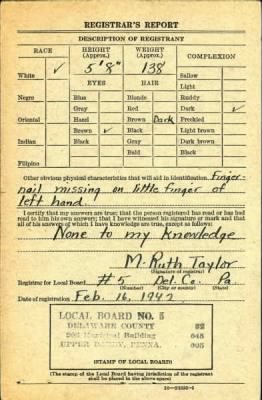 REGISTRAR'S REPORT
DESCRIPTION OF REGISTRANT
RACE HEIGHT (Approx.) WEIGHT (Approx.) COMPLEXION
White ✓ 5'8" 138 Sallow
EYES HAIR Light
Negro Blue Blonde Ruddy
Gray Red Dark ✓
Oriental Hazel Brown Dark Freckled
Brown ✓ Black Light brown
Indian Black Gray Dark brown
Bald Black
Filipino
Other obvious physical characteristics that will aid in identification Finger-
nail missing on little finger of
left hand.
I certify that my answers are true; that the person registered has read or has had
read to him his own answers; that I have witnessed his signature or mark and that
all of his answers of which I have knowledge are true, except as follows:
None to my knowledge
M. Ruth Taylor
(Signature of registrar)
Registrar for Local Board #5 Del. Co. Pa
(Number) (City or county) (State)
Date of registration Feb. 16, 1942
LOCAL BOARD NO. 5
DELAWARE COUNTY
Municipal Building
UPPER DARBY, PENNA.
(STAMP OF LOCAL BOARD)
(The stamp of the Local Board having jurisdiction of the registrant
shall be placed in the above space)